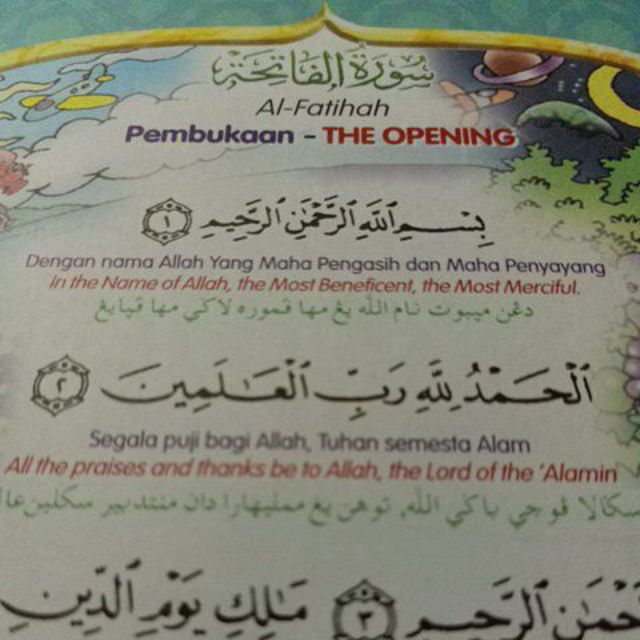 سُورَةُ الْفَاتِحَةِ
Al-Fatihah
Pembukaan - THE OPENING
بِسْمِ اللَّهِ الرَّحْمَٰنِ الرَّحِيمِ ١
Dengan nama Allah Yang Maha Pengasih dan Maha Penyayang
In the Name of Allah, the Most Beneficent, the Most Merciful.
دڠن ميبوت نام الله يڠ مها ڤموره لاݢي مها ڤڠاسيه
الْحَمْدُ لِلَّهِ رَبِّ الْعَالَمِينَ ٢
Segala puji bagi Allah, Tuhan semesta Alam
All the praises and thanks be to Allah, the Lord of the 'Alamin
سكالا ڤوجي باݢي الله، توهن يڠ دان
الرَّحِيمِ ٣ مَالِكِ يَوْمِ الدِّينِ